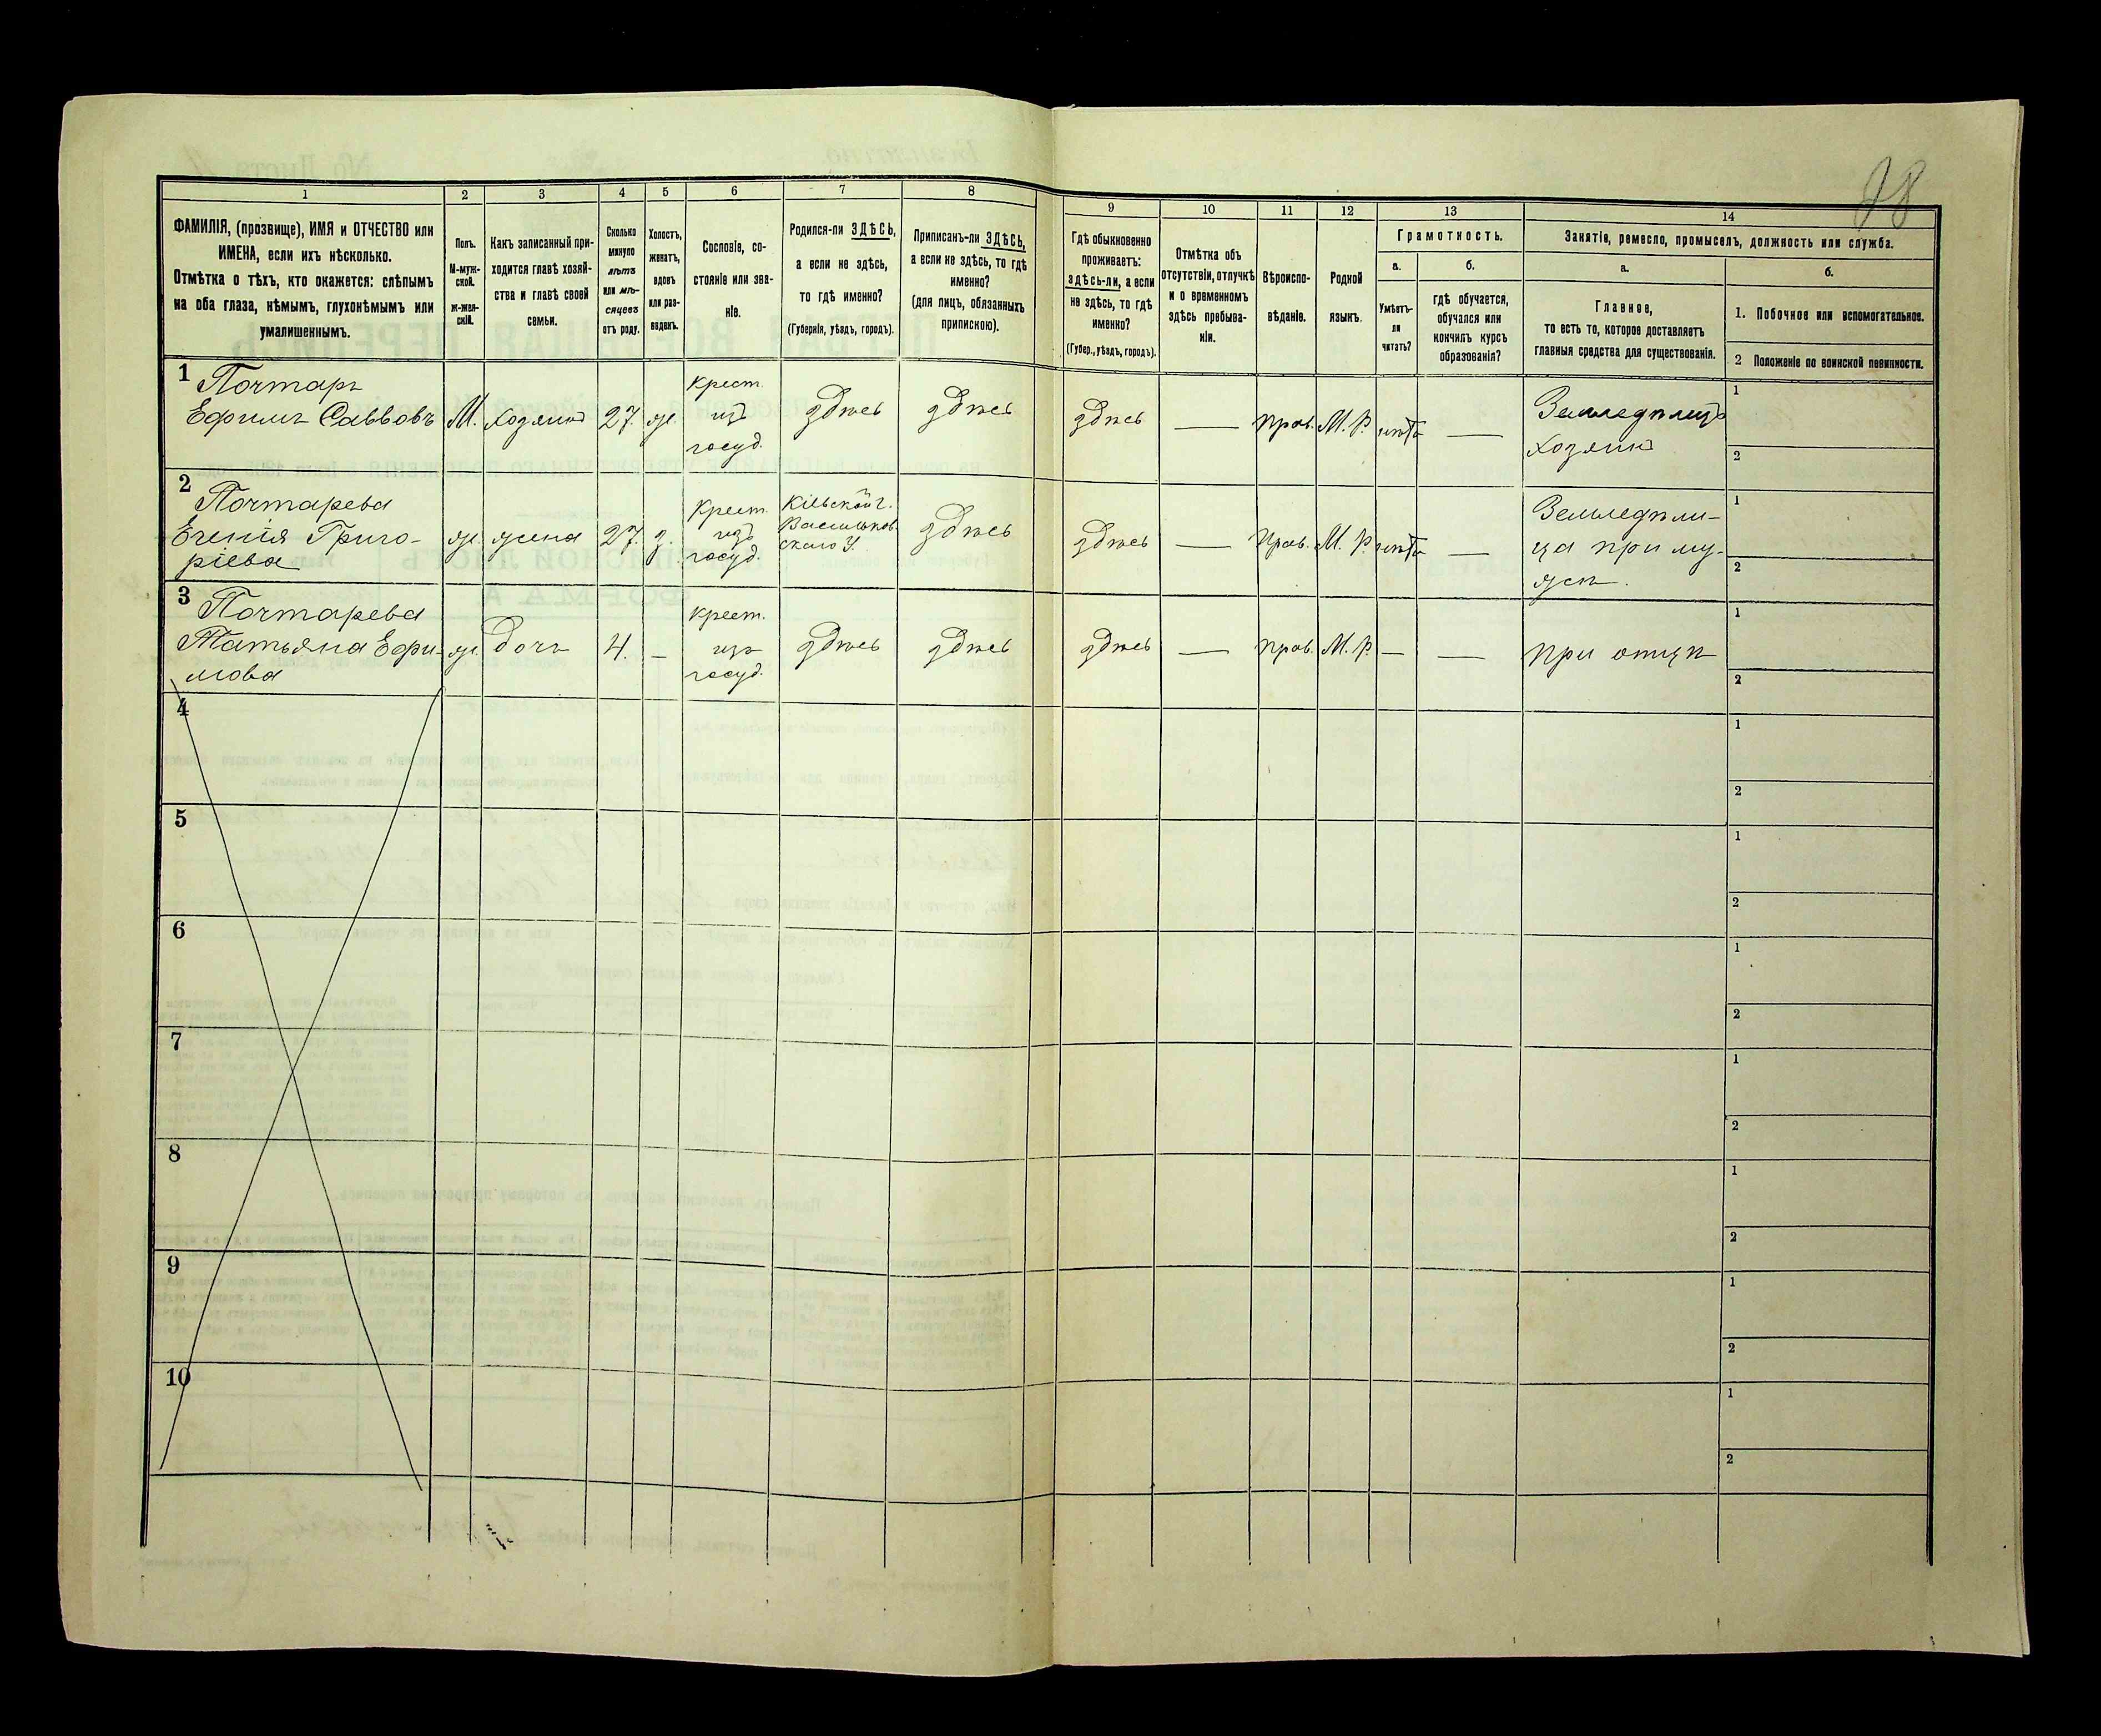 98
1 2 3 4 5 6 7 8 9 10 11 12 13 14
ФАМИЛІЯ, (прозвище), ИМЯ и ОТЧЕСТВО или
ИМЕНА, если ихъ нѣсколько.
Отмѣтка о тѣхъ, кто окажется: слѣпымъ
на оба глаза, нѣмымъ, глухонѣмымъ или
умалишеннымъ.
Полъ.
М-муж-
ской.
ж-жен-
скій.
Какъ записанный при-
ходится главѣ хозяй-
ства и главѣ своей
семьи.
Сколько
минуло
лѣтъ
или мѣ-
сяцевъ
отъ роду.
Холостъ,
женатъ,
вдовъ
или раз-
веденъ.
Сословіе, со-
стояніе или зва-
ніе.
Родился-ли ЗДѢСЬ,
а если не здѣсь,
то гдѣ именно?
(Губернія, уѣздъ, городъ).
Приписанъ-ли ЗДѢСЬ,
а если не здѣсь, то гдѣ
именно?
(для лицъ, обязанныхъ
припискою).
Гдѣ обыкновенно
проживаетъ:
здѣсь-ли, а если
не здѣсь, то гдѣ
именно?
(Губер., уѣздъ, городъ).
Отмѣтка объ
отсутствіи, отлучкѣ
и о временномъ
здѣсь пребыва-
ніи.
Вѣроиспо-
вѣданіе.
Родной
языкъ.
Грамотность.
а.
Умѣетъ-
ли
читать?
б.
гдѣ обучается,
обучался или
кончилъ курсъ
образованія?
Занятіе, ремесло, промыселъ, должность или служба.
а.
Главное,
то есть то, которое доставляетъ
главныя средства для существованія.
б.
1. Побочное или вспомогательное.
2 Положеніе по воинской повинности.
1
Почтарь
Ефимъ Саввовъ
М.
хозяинъ
27.
ж.
крест.
изъ
госуд.
здѣсь
здѣсь
здѣсь
—
прав.
М. Р.
нѣтъ
—
Земледѣлецъ
хозяинъ
1
2
2
Почтарева
Евгенія Григо-
ріева
ж.
жена
27
з.
крест.
изъ
госуд.
Кіевской г.
Васильков-
скаго У.
здѣсь
здѣсь
—
прав.
М. Р.
нѣтъ
—
Земледѣли-
ца при му-
жѣ.
1
2
3
Почтарева
Татьяна Ефи-
мова
ж.
дочь
4.
—
крест.
изъ
госуд.
здѣсь
здѣсь
здѣсь
—
прав.
М. Р.
—
—
при отцѣ
1
2
4
1
2
5
1
2
6
1
2
7
1
2
8
1
2
9
1
2
10
1
2